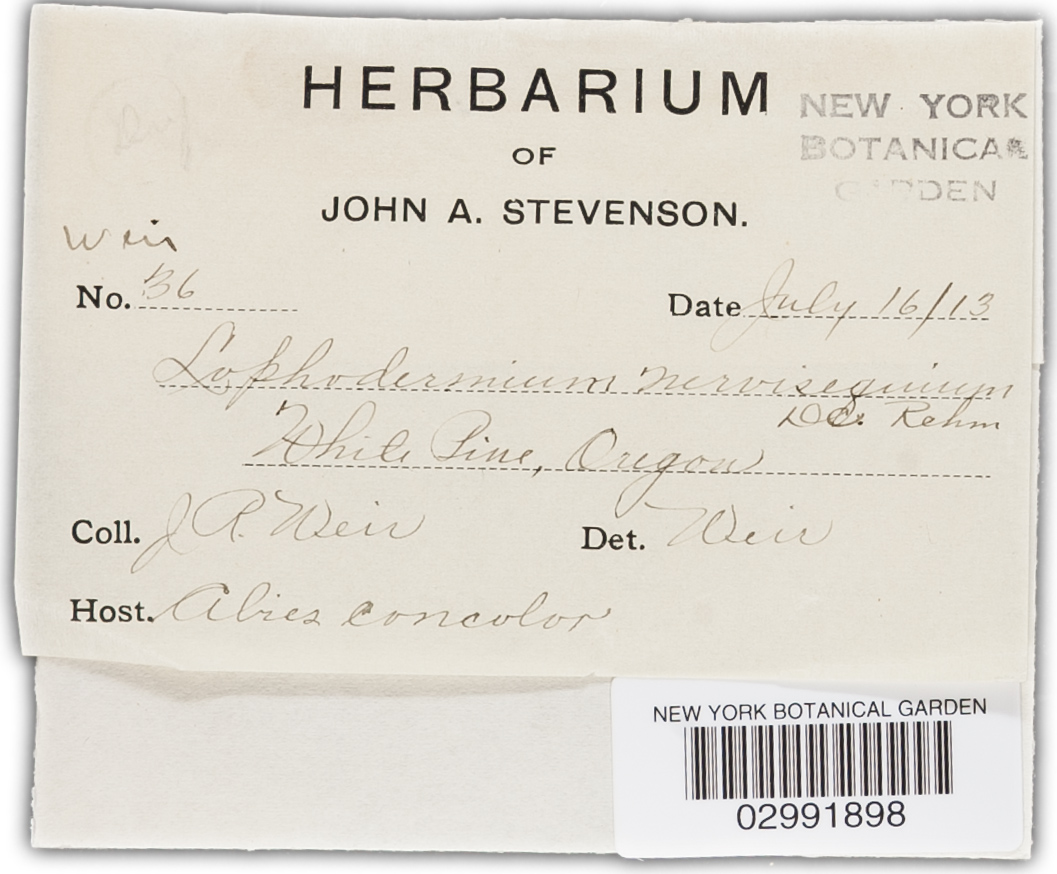 HERBARIUM
OF
JOHN A. STEVENSON.
NEW YORK
BOTANICAL
GARDEN
Weir
No. 36
Date July 16/13
Lophodermium nervisequium
DC. Rehm
White Pine, Oregon
Coll. J. R. Weir
Det. Weir
Host. Abies concolor
NEW YORK BOTANICAL GARDEN
02991898